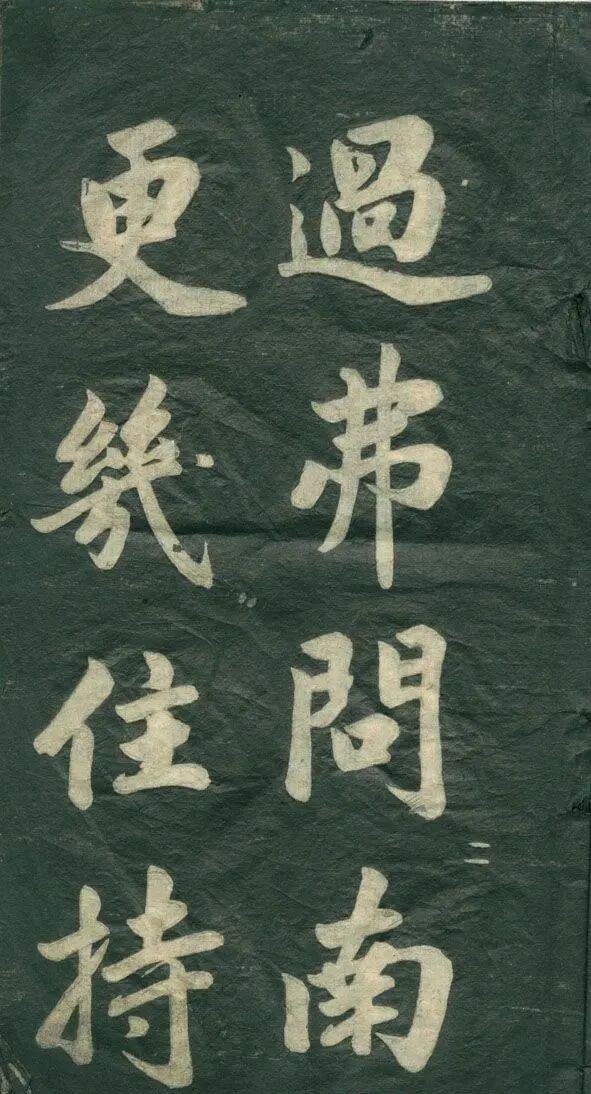 過弗問南
更幾住持